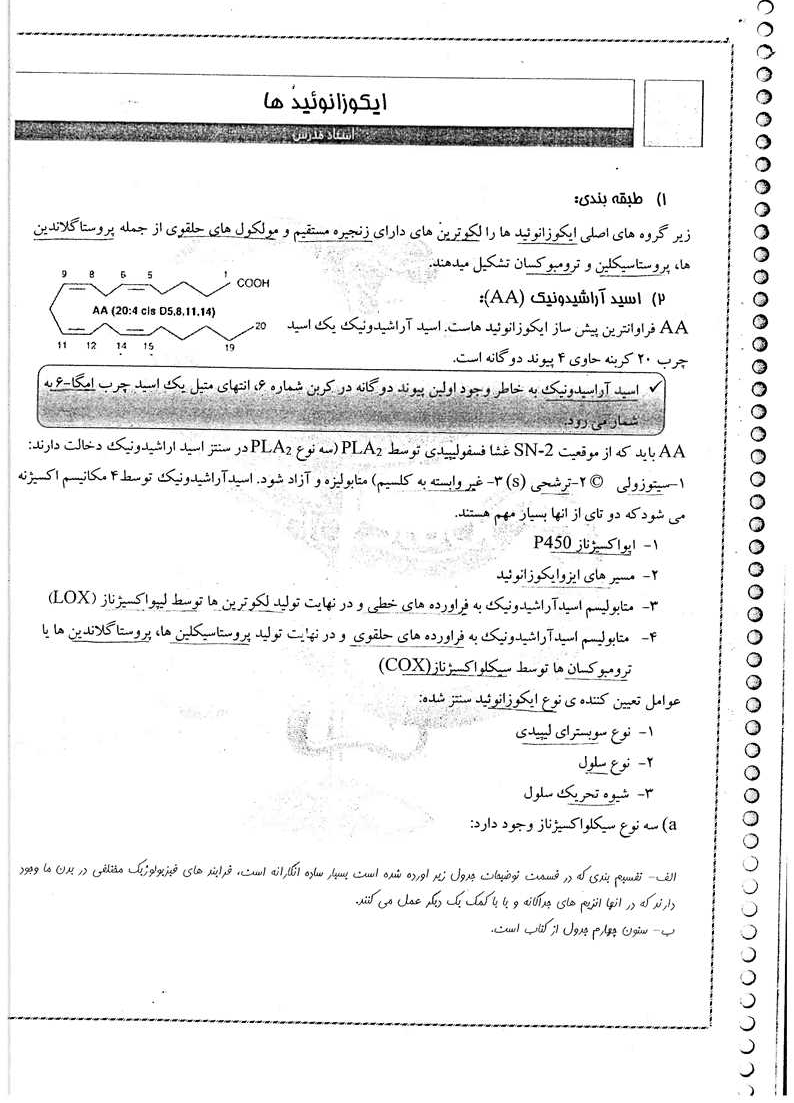 ایکوزانوئید ها
استاد مدرس
۱) طبقه بندی:
زیر گروه های اصلی ایکوزانوئید ها را لکوترین های دارای زنجیره مستقیم و مولکول های حلقوی از جمله پروستاگلاندین
ها، پروستاسیکلین و ترومبوکسان تشکیل میدهند.
۲) اسید آراشیدونیک (AA):
AA فراوانترین پیش ساز ایکوزانوئید هاست. اسید آراشیدونیک یک اسید
چرب ۲۰ کربنه حاوی ۴ پیوند دوگانه است.
9 8 6 5 1 COOH
AA (20:4 cis D5,8,11,14)
11 12 14 15 19 20
✓ اسید آراسیدونیک به خاطر وجود اولین پیوند دوگانه در کربن شماره ۶، انتهای متیل یک اسید چرب امگا-۶ به
شمار می رود.
AA باید که از موقعیت SN-2 غشا فسفولیپیدی توسط PLA2 (سه نوع PLA2 در سنتز اسید اراشیدونیک دخالت دارند:
۱-سیتوزولی © ۲-ترشحی (s) ۳- غیر وابسته به کلسیم) متابولیزه و آزاد شود. اسیدآراشیدونیک توسط ۴ مکانیسم اکسیژنه
می شود که دو تای از انها بسیار مهم هستند.
۱- اپواکسیژناز P450
۲- مسیر های ایزوایکوزانوئید
۳- متابولیسم اسیدآراشیدونیک به فراورده های خطی و در نهایت تولید لکوترین ها توسط لیپواکسیژناز (LOX)
۴- متابولیسم اسیدآراشیدونیک به فراورده های حلقوی و در نهایت تولید پروستاسیکلین ها، پروستاگلاندین ها یا
ترومبوکسان ها توسط سیکلواکسیژناز(COX)
عوامل تعیین کننده ی نوع ایکوزانوئید سنتز شده:
۱- نوع سوبسترای لیپیدی
۲- نوع سلول
۳- شیوه تحریک سلول
a) سه نوع سیکلواکسیژناز وجود دارد:
الف- تقسیم بندی که در قسمت توضیحات جدول زیر اورده شده است بسیار ساده انگارانه است، فرایند های فیزیولوژیک مختلفی در بدن ما وجود
دارند که در انها انزیم های جداگانه و یا با کمک یک دیگر عمل می کنند.
ب- ستون چهارم جدول از کتاب است.